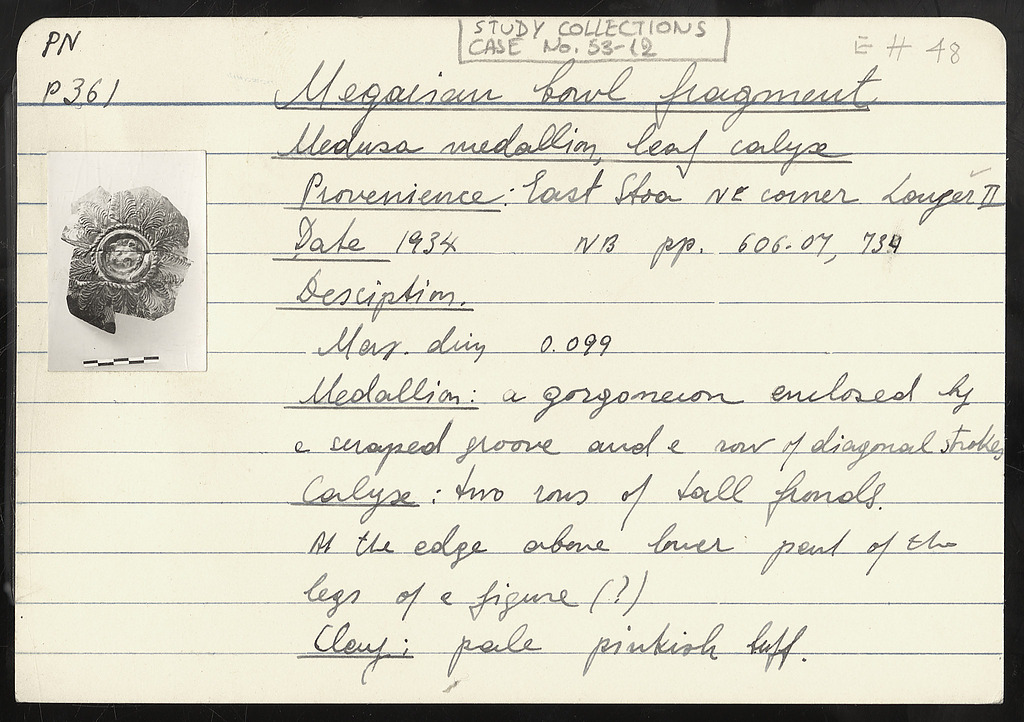 PN
P 361
STUDY COLLECTIONS
CASE No. 53-12
E # 48
Megarian bowl fragment
Medusa medallion, leaf calyx
Provenience: East Stoa NE corner Layer II
Date 1934 NB pp. 606-07, 734
Desciption.
Max. dim 0.099
Medallion: a gorgoneion enclosed by
a scraped groove and a row of diagonal strokes
Calyx: two rows of tall fronds.
At the edge above lower part of the
legs of a figure (?)
Clay: pale pinkish buff.